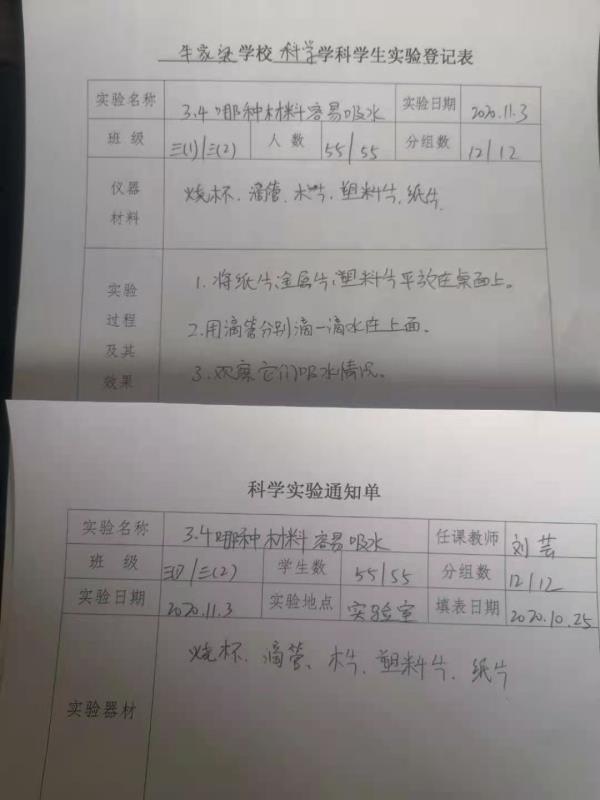 牛家梁学校 科学学科学生实验登记表
实验名称 3.4哪种材料容易吸水 实验日期 2020.11.3
班 级 三(1)/三(2) 人 数 55/55 分组数 12/12
仪器
材料
烧杯、滴管、木片、塑料片、纸片
实验
过程
及其
效果
1.将纸片、金属片、塑料片平放在桌面上。
2.用滴管分别滴一滴水在上面。
3.观察它们吸水情况。
科学实验通知单
实验名称 3.4哪种材料容易吸水 任课教师 刘芸
班 级 三(1)/三(2) 学生数 55/55 分组数 12/12
实验日期 2020.11.3 实验地点 实验室 填表日期 2020.10.25
实验器材 烧杯、滴管、木片、塑料片、纸片